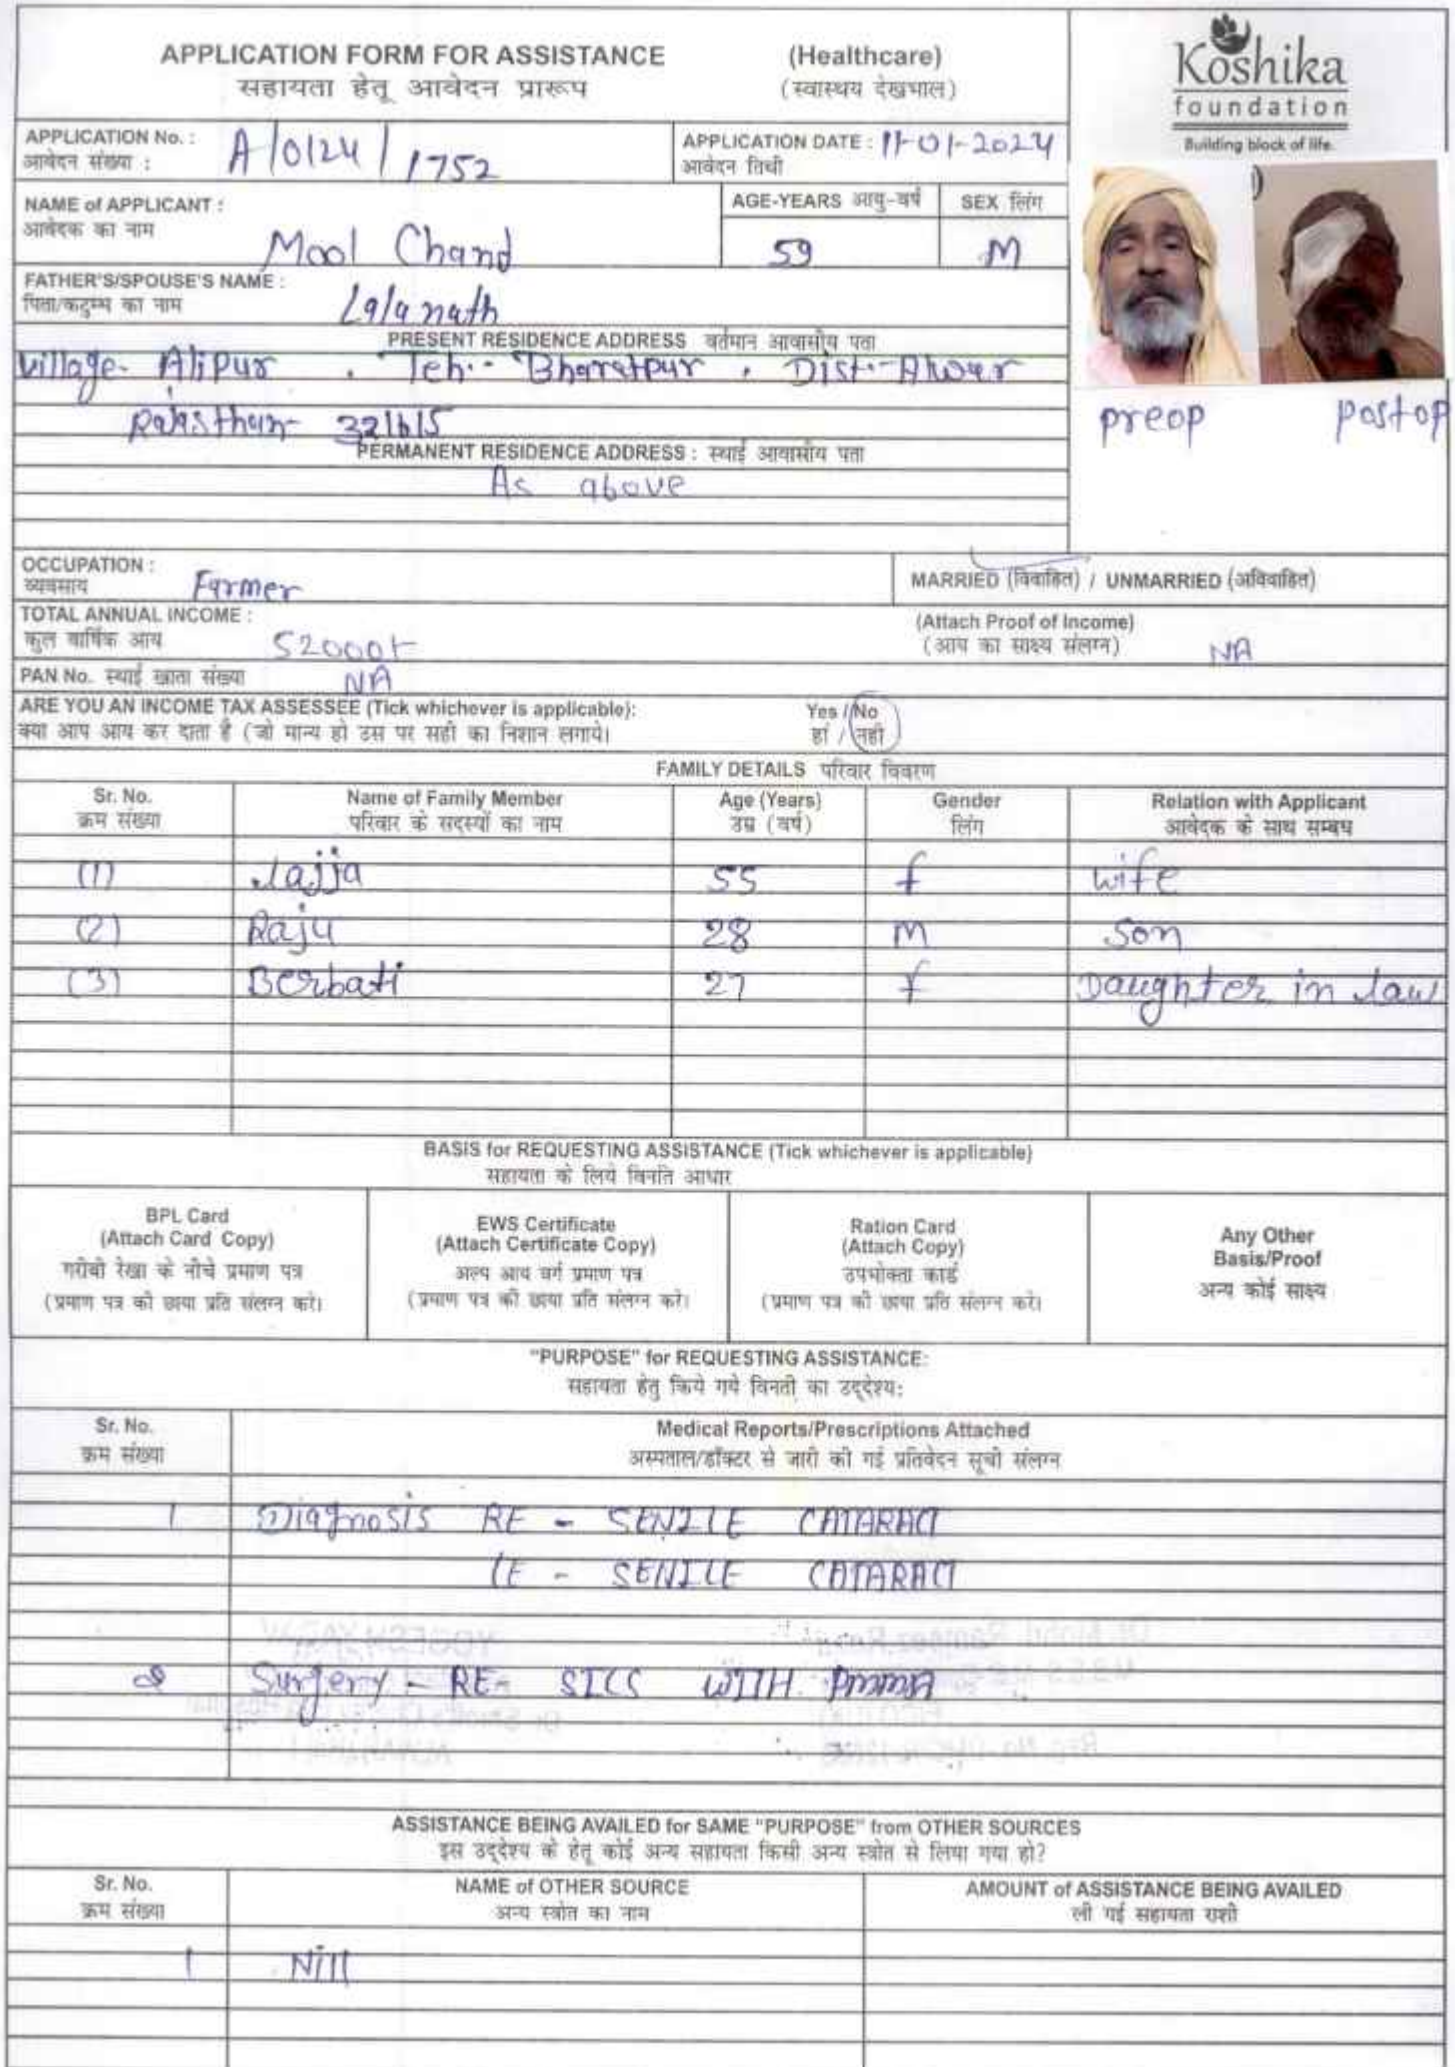 APPLICATION FORM FOR ASSISTANCE (Healthcare)
सहायता हेतू आवेदन प्रारूप (स्वास्थय देखभाल)
Koshika
foundation
Building block of life.
APPLICATION No. : A/0124/1752
आवेदन संख्या :
APPLICATION DATE : 11-01-2024
आवेदन तिथी
NAME of APPLICANT :
आवेदक का नाम
Mool Chand
AGE-YEARS आयु-वर्ष
59
SEX लिंग
M
FATHER'S/SPOUSE'S NAME :
पिता/कटुम्ब का नाम
Lalanath
preop postop
PRESENT RESIDENCE ADDRESS वर्तमान आवासीय पता
Village- Alipur . Teh:- Bharatpur . Dist:- Alwar
Rajasthan- 321615
PERMANENT RESIDENCE ADDRESS : स्थाई आवासीय पता
As above
OCCUPATION :
व्यवसाय
Farmer
MARRIED (विवाहित) / UNMARRIED (अविवाहित)
TOTAL ANNUAL INCOME :
कुल वार्षिक आय
52000/-
(Attach Proof of Income)
(आय का साक्ष्य संलग्न)
NA
PAN No. स्थाई खाता संख्या
NA
ARE YOU AN INCOME TAX ASSESSEE (Tick whichever is applicable): Yes / No
क्या आप आय कर दाता है (जो मान्य हो उस पर सही का निशान लगाये। हां / नही
FAMILY DETAILS परिवार विवरण
Sr. No. Name of Family Member Age (Years) Gender Relation with Applicant
क्रम संख्या परिवार के सदस्यों का नाम उम्र (वर्ष) लिंग आवेदक के साथ सम्बध
(1) Lajja 55 f wife
(2) Raju 28 M Son
(3) Berbati 27 f Daughter in law
BASIS for REQUESTING ASSISTANCE (Tick whichever is applicable)
सहायता के लिये विनति आधार
BPL Card
(Attach Card Copy)
गरीबी रेखा के नीचे प्रमाण पत्र
(प्रमाण पत्र की छाया प्रति संलग्न करे।
EWS Certificate
(Attach Certificate Copy)
अल्प आय वर्ग प्रमाण पत्र
(प्रमाण पत्र की छाया प्रति संलग्न करे।
Ration Card
(Attach Copy)
उपभोक्ता कार्ड
(प्रमाण पत्र की छाया प्रति संलग्न करे।
Any Other
Basis/Proof
अन्य कोई साक्ष्य
"PURPOSE" for REQUESTING ASSISTANCE:
सहायता हेतु किये गये विनती का उद्देश्य:
Sr. No. Medical Reports/Prescriptions Attached
क्रम संख्या अस्पताल/डॉक्टर से जारी की गई प्रतिवेदन सूची संलग्न
1 Diagnosis RE - SENILE CATARACT
LE - SENILE CATARACT
2 Surgery - RE- SICS WITH PMMA
ASSISTANCE BEING AVAILED for SAME "PURPOSE" from OTHER SOURCES
इस उद्देश्य के हेतू कोई अन्य सहायता किसी अन्य स्त्रोत से लिया गया हो?
Sr. No. NAME of OTHER SOURCE AMOUNT of ASSISTANCE BEING AVAILED
क्रम संख्या अन्य स्त्रोत का नाम ली गई सहायता राशी
1 Nill